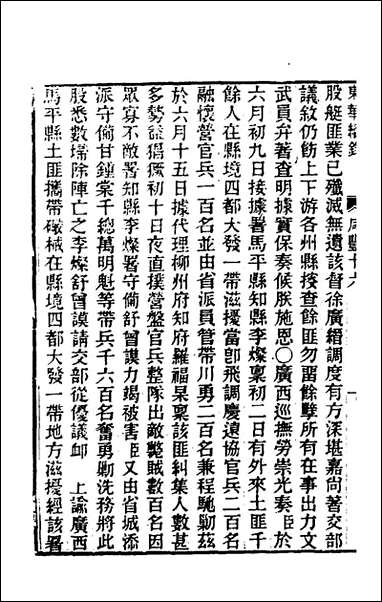 東華續錄 咸豐十六
股艇匪業已殲滅無遺該督徐廣縉調度有方深堪嘉尚著交部
議敘仍飭上下游各州縣按查餘匪勿畱餘孼所有在事出力文
武員弁著查明據實保奏候朕施恩〇廣西巡撫勞崇光奏臣於
六月初九日接據署馬平縣知縣李燦稟初二日有外來土匪千
餘人在縣境四都大發一帶滋擾當卽飛調慶遠協官兵二百名
融懷營官兵一百名並由省派員管帶川勇二百名兼程馳勦茲
於六月十五日據代理柳州府知府羅福杲稟該匪糾集人數甚
多勢益猖獗初十日夜直撲營盤官兵整隊出敵斃賊數百名因
眾寡不敵署知縣李燦署守備舒曾謨力竭被害臣又由省城添
派守備甘鍾棠千總萬明魁等帶兵千六百名奮勇勦洗務將此
股悉數埽除陣亡之李燦舒曾謨請交部從優議卹 上諭廣西
馬平縣土匪攜帶礮械在縣境四都大發一帶地方滋擾經該署